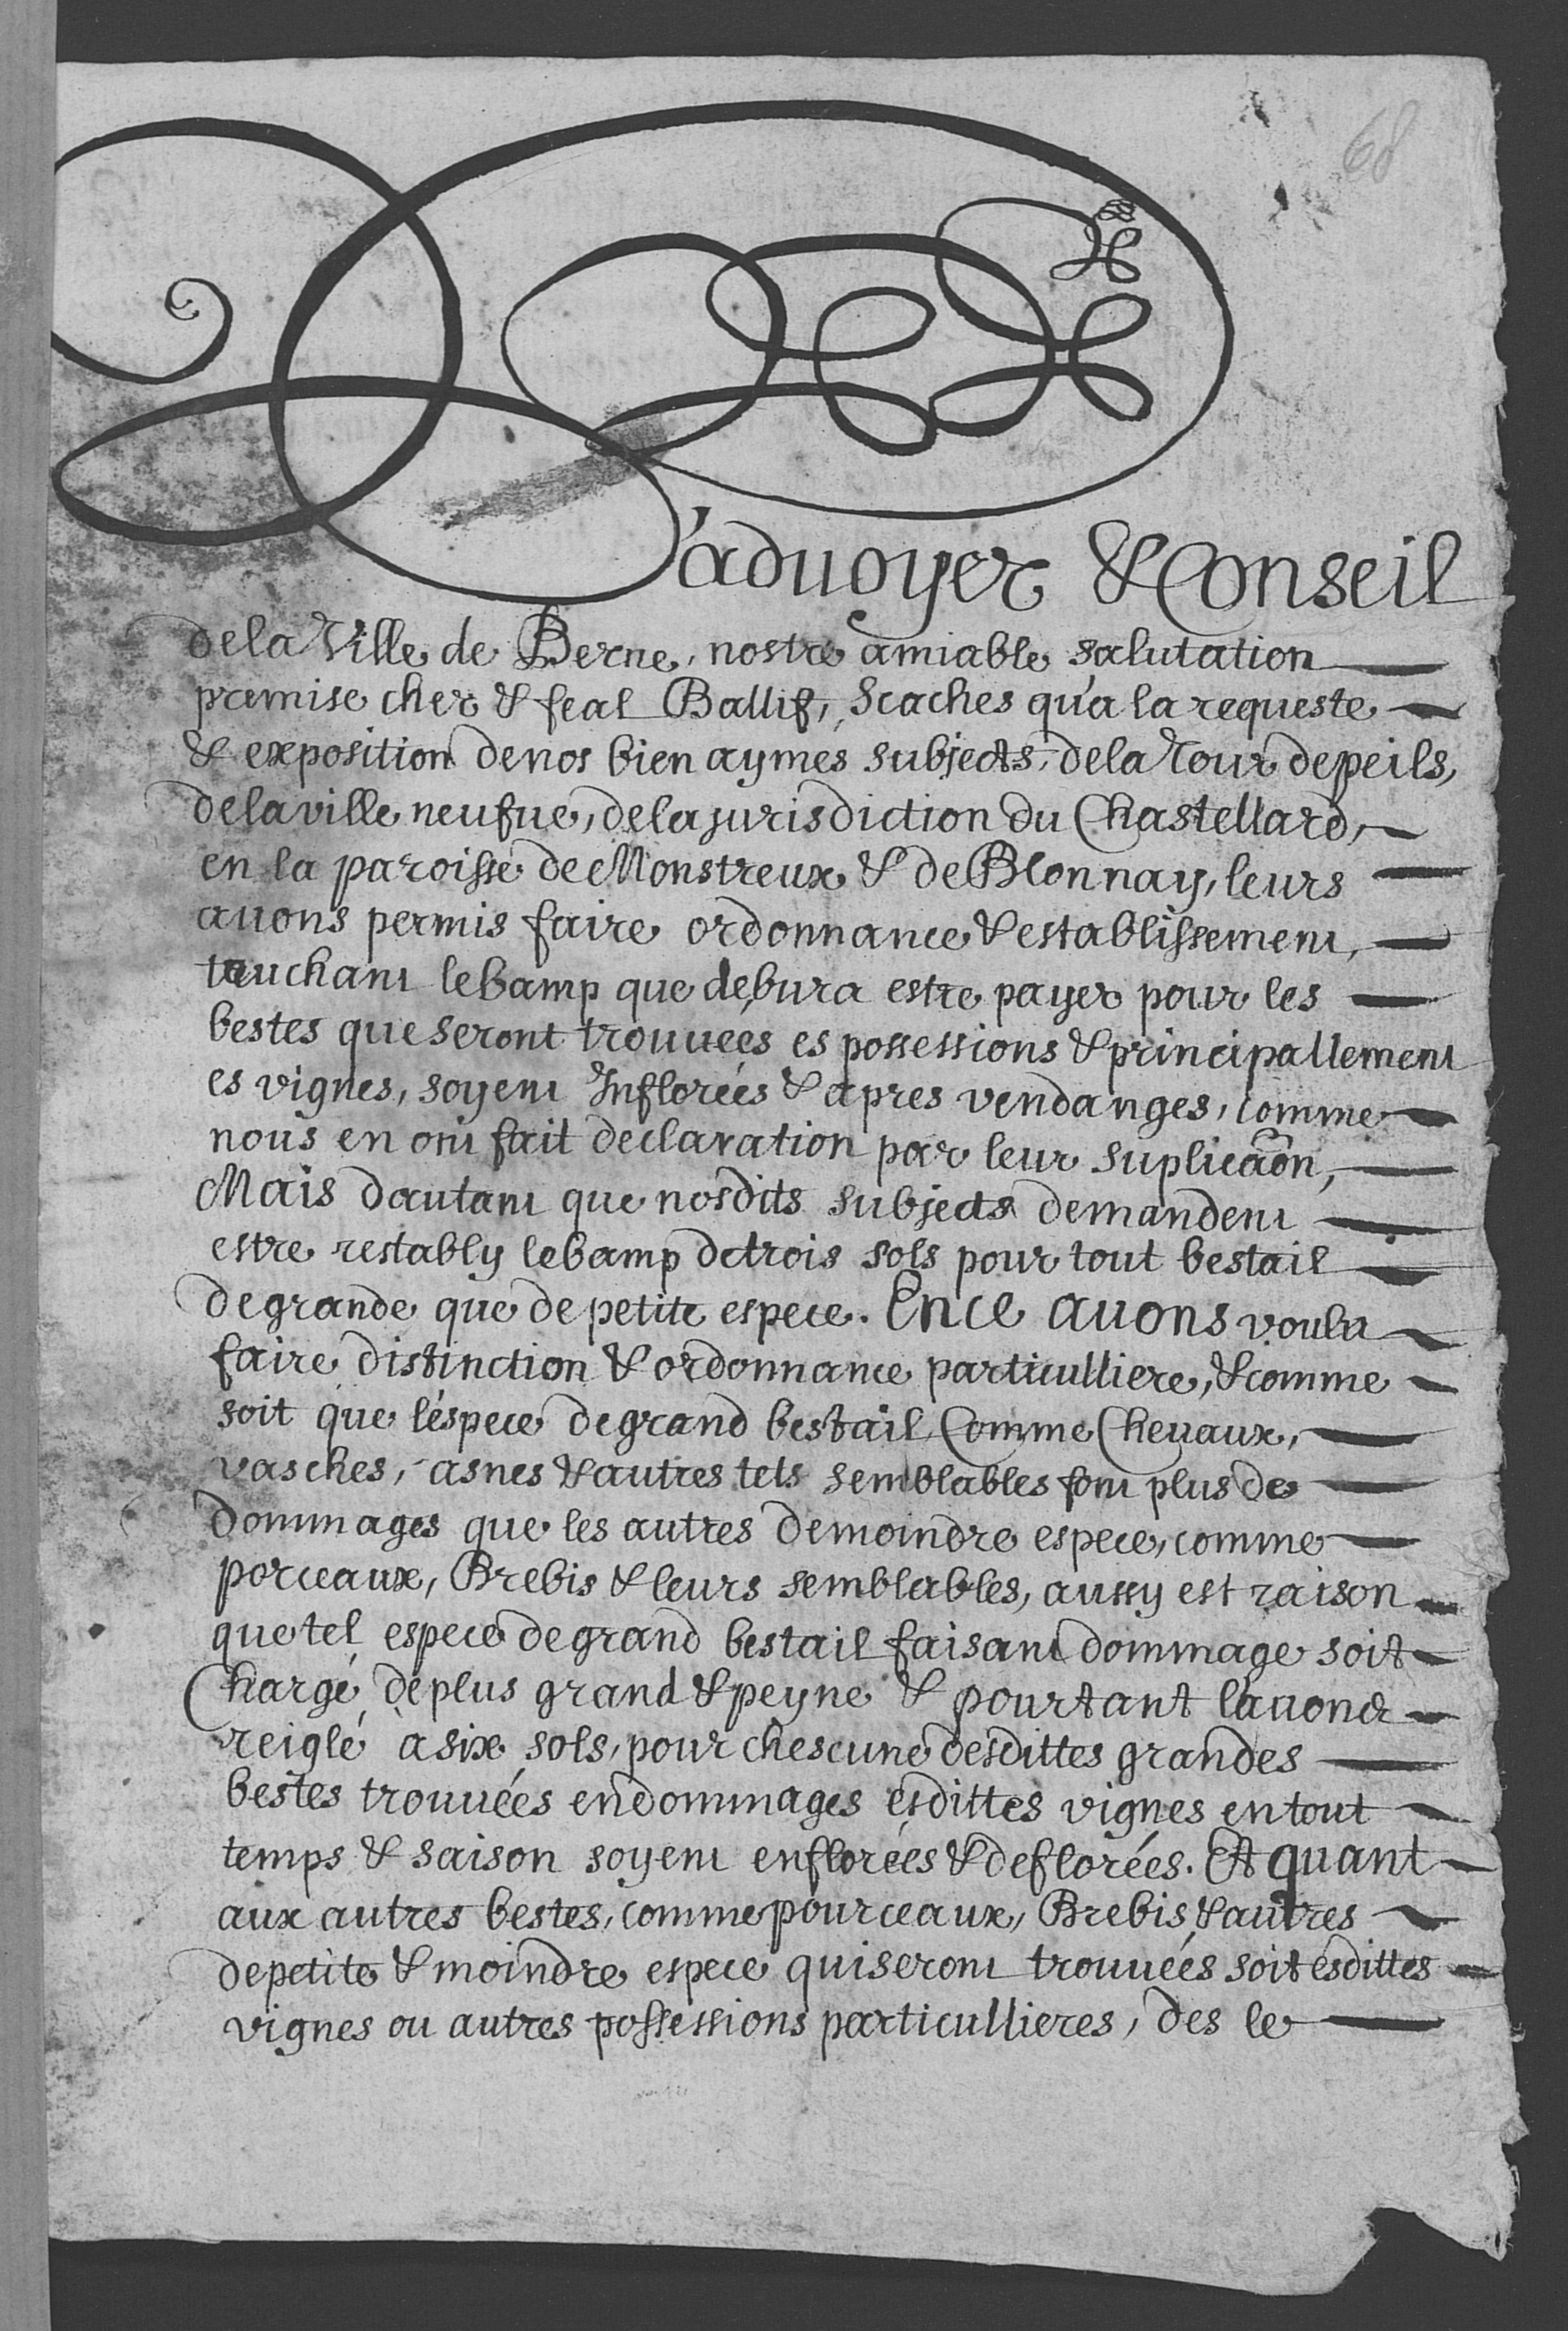 68
L'aduoyer & Conseil
de la Ville de Berne, nostre amiable salutation
premise cher & feal Ballif, Scaches qu'a la requeste
& exposition de nos bien aymés subjects, de la Tour de peils,
de la ville neufue, de la jurisdiction du Chastellard,
en la paroisse de Monstreux & de Blonnay, leurs
auons permis faire ordonnance & establissement,
touchant le bamp que debura estre payer pour les
bestes que seront trouuées es possessions & principallement
es vignes, soyent Inflorées & apres vendanges, comme
nous en ont fait declaration par leur suplicaôn,
Mais dautant que nosdits subjects demandent
estre restably le bamp de trois sols pour tout bestail
de grande que de petite espece. En ce auons voulu
faire distinction & ordonnance particulliere, & comme
soit que l'espece de grand bestail Comme Cheuaux,
vasches, asnes & autres tels semblables font plus de
dommages que les autres de moindre espece, comme
porceaux, Brebis & leurs semblables, aussy est raison
que tel espece de grand bestail faisant dommage soit
Chargé de plus grand & peyne & pourtant l'auons
reiglé a six sols, pour chescune desdittes grandes
bestes trouuées en dommages esdittes vignes en tout
temps & saison soyent enflorées & deflorées. Et quant
aux autres bestes, comme pourceaux, Brebis & autres
de petite & moindre espece qui seront trouuées soit esdittes
vignes ou autres possessions particullieres, des le